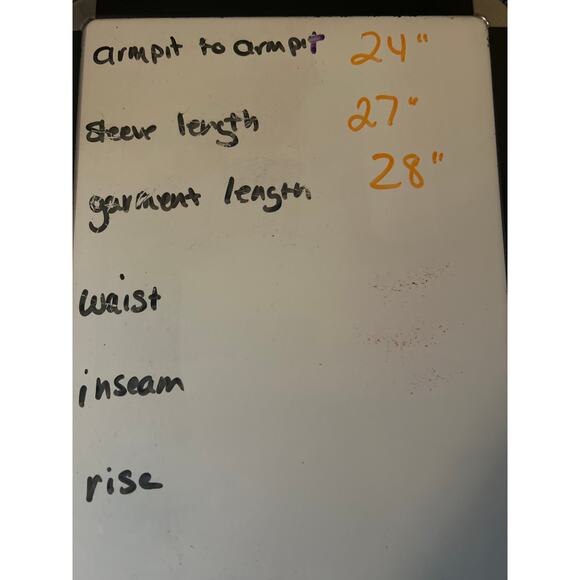 armpit to armpit 24"
sleeve length 27"
garment length 28"
waist
inseam
rise